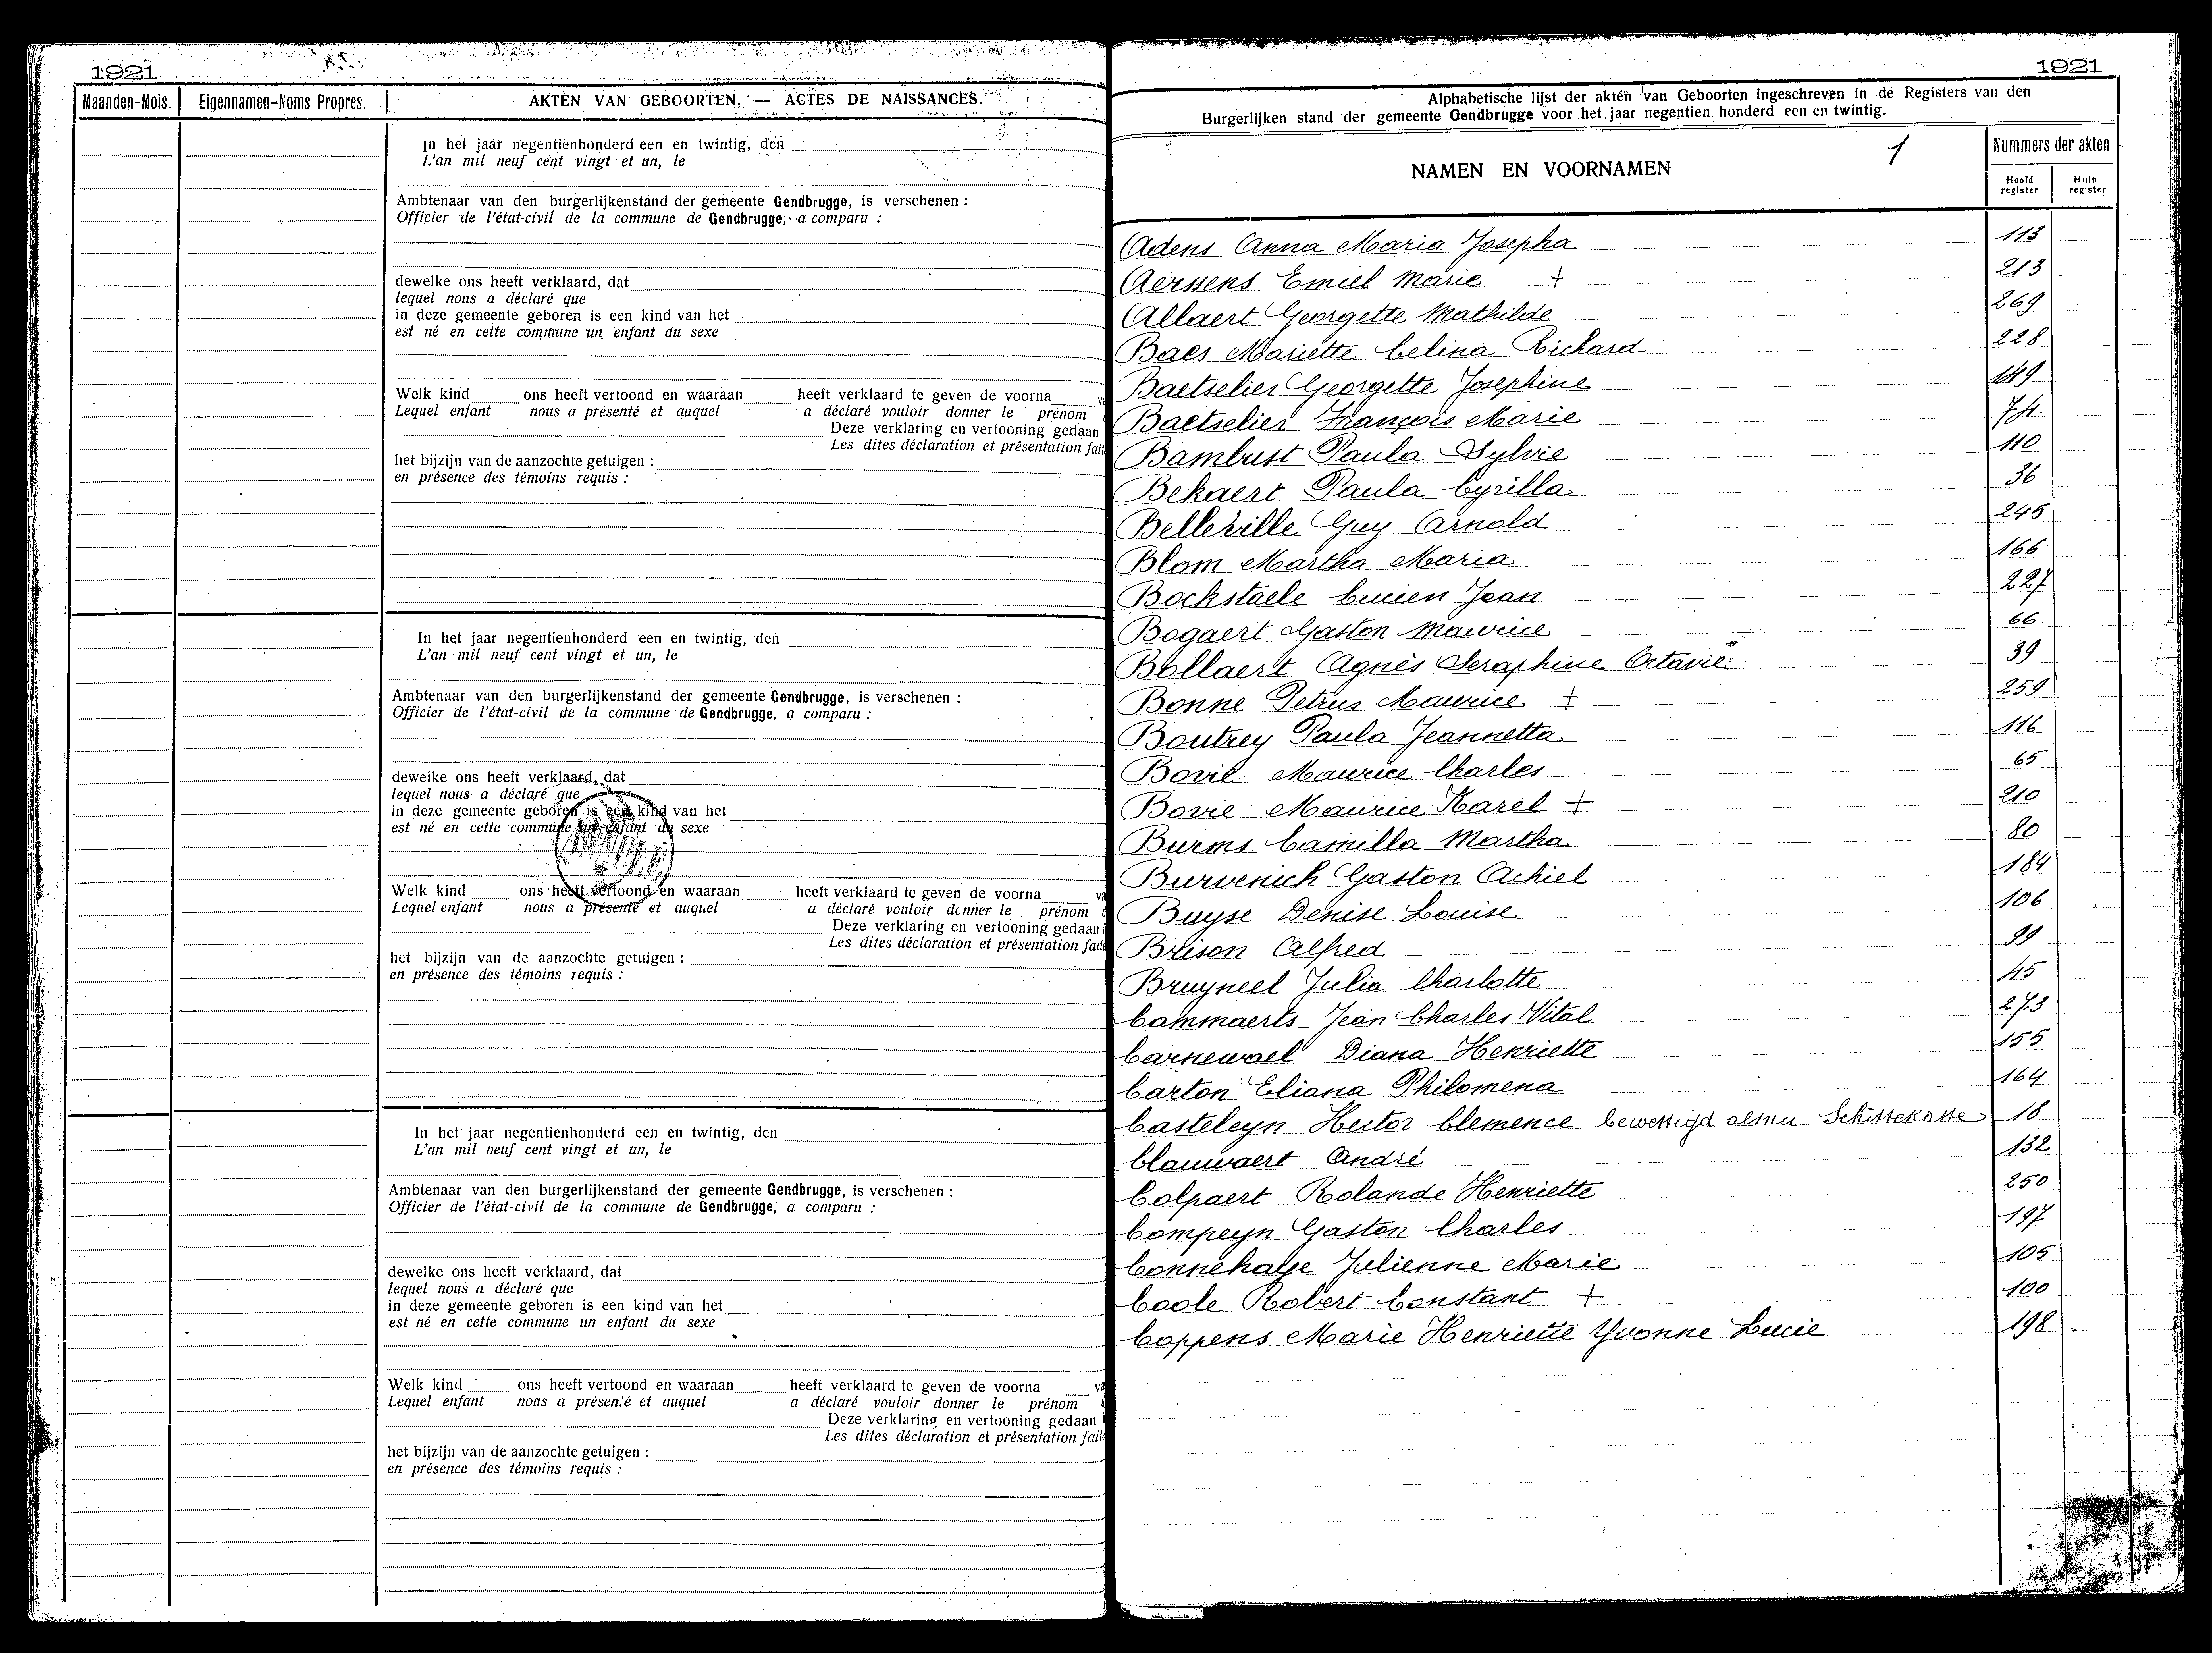 1921
Maanden-Mois. Eigennamen-Noms Propres. AKTEN VAN GEBOORTEN. — ACTES DE NAISSANCES.
In het jaar negentienhonderd een en twintig, den
L'an mil neuf cent vingt et un, le
Ambtenaar van den burgerlijkenstand der gemeente Gendbrugge, is verschenen :
Officier de l'état-civil de la commune de Gendbrugge, a comparu :
dewelke ons heeft verklaard, dat
lequel nous a déclaré que
in deze gemeente geboren is een kind van het
est né en cette commune un enfant du sexe
Welk kind ons heeft vertoond en waaraan heeft verklaard te geven de voorna va
Lequel enfant nous a présenté et auquel a déclaré vouloir donner le prénom
Deze verklaring en vertooning gedaan
Les dites déclaration et présentation fait
het bijzijn van de aanzochte getuigen :
en présence des témoins requis :
In het jaar negentienhonderd een en twintig, den
L'an mil neuf cent vingt et un, le
Ambtenaar van den burgerlijkenstand der gemeente Gendbrugge, is verschenen :
Officier de l'état-civil de la commune de Gendbrugge, a comparu :
dewelke ons heeft verklaard, dat
lequel nous a déclaré que
in deze gemeente geboren is een kind van het
est né en cette commune un enfant du sexe
Welk kind ons heeft vertoond en waaraan heeft verklaard te geven de voorna va
Lequel enfant nous a présenté et auquel a déclaré vouloir donner le prénom
Deze verklaring en vertooning gedaan
Les dites déclaration et présentation fait
het bijzijn van de aanzochte getuigen :
en présence des témoins requis :
In het jaar negentienhonderd een en twintig, den
L'an mil neuf cent vingt et un, le
Ambtenaar van den burgerlijkenstand der gemeente Gendbrugge, is verschenen :
Officier de l'état-civil de la commune de Gendbrugge, a comparu :
dewelke ons heeft verklaard, dat
lequel nous a déclaré que
in deze gemeente geboren is een kind van het
est né en cette commune un enfant du sexe
Welk kind ons heeft vertoond en waaraan heeft verklaard te geven de voorna va
Lequel enfant nous a présenté et auquel a déclaré vouloir donner le prénom
Deze verklaring en vertooning gedaan
Les dites déclaration et présentation fait
het bijzijn van de aanzochte getuigen :
en présence des témoins requis :
1921
Alphabetische lijst der akten van Geboorten ingeschreven in de Registers van den
Burgerlijken stand der gemeente Gendbrugge voor het jaar negentien honderd een en twintig.
NAMEN EN VOORNAMEN 1 Nummers der akten
Hoofd register Hulp register
Adens Anna Maria Josepha 113
Aerssens Emiel Marie + 213
Allaert Georgette Mathilde 269
Baes Mariette Celina Richard 228
Baetselier Georgette Josephine 149
Baetselier François Marie 74.
Bambust Paula Sylvie 110
Bekaert Paula Cyrilla 36
Belleville Guy Arnold 245
Blom Martha Maria 166
Bockstaele Lucien Jean 227
Bogaert Gaston Maurice 66
Bollaert Agnès Seraphine Octavie 39
Bonne Petrus Maurice + 259
Boutrey Paula Jeannetta 116
Bovie Maurice Charles 65
Bovie Maurice Karel + 210
Burms Camilla Martha 80
Burvenich Gaston Achiel 184
Buyse Denise Louise 106
Brison Alfred 99
Bruyneel Julia Charlotte 45
Cammaerts Jean Charles Vital 273
Carnewael Diana Henriette 155
Carton Eliana Philomena 164
Casteleyn Hector Clemence bewettigd Schittekatte 18
Clauwaert André 132
Colpaert Rolande Henriette 250
Compeyn Gaston Charles 197
Connehaye Julienne Marie 105
Coole Robert Constant + 100
Coppens Marie Henriette Yvonne Lucie 198